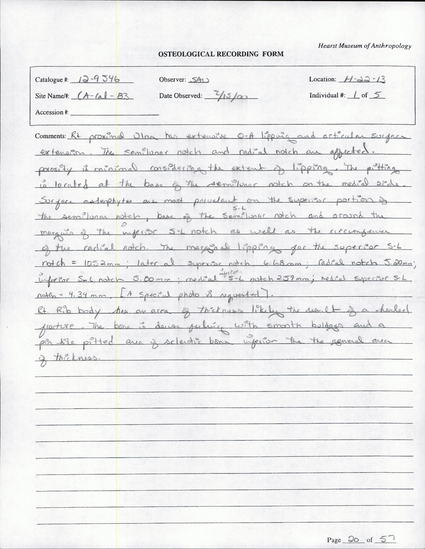 Hearst Museum of Anthropology
OSTEOLOGICAL RECORDING FORM
Catalogue #: 12-9346 Observer: SAW Location: H-22-13
Site Name/#: CA-Cal-83 Date Observed: Individual #: 1 of 5
Accession #:
Comments: Rt proximal Ulna has extensive O-A lipping and articular surface
extension. The semilunar notch and radial notch are affected.
porosity is minimal considering the extent of lipping. The pitting
is located at the base of the semilunar notch on the medial side.
Surface osteophytes are most prevalent on the superior portion of
the semilunar notch, base of the S-L semilunar notch and around the
margin of the inferior S-L notch as well as the circumference
of the radial notch. The marginal lipping for the superior S-L
notch = 10.52mm; lateral superior notch 6.68mm; radial notch 5.20mm;
inferior S-L notch 5.00mm; medial inferior S-L notch 2.59mm; medial superior S-L
notch = 4.34mm. [A special photo is requested].
Rt Rib body has an area of thickness likely the result of a healed
fracture. The bone is dense with smooth bulges and a
pin size pitted area of sclerotic bone inferior the the general area
of thickness.
Page 20 of 57